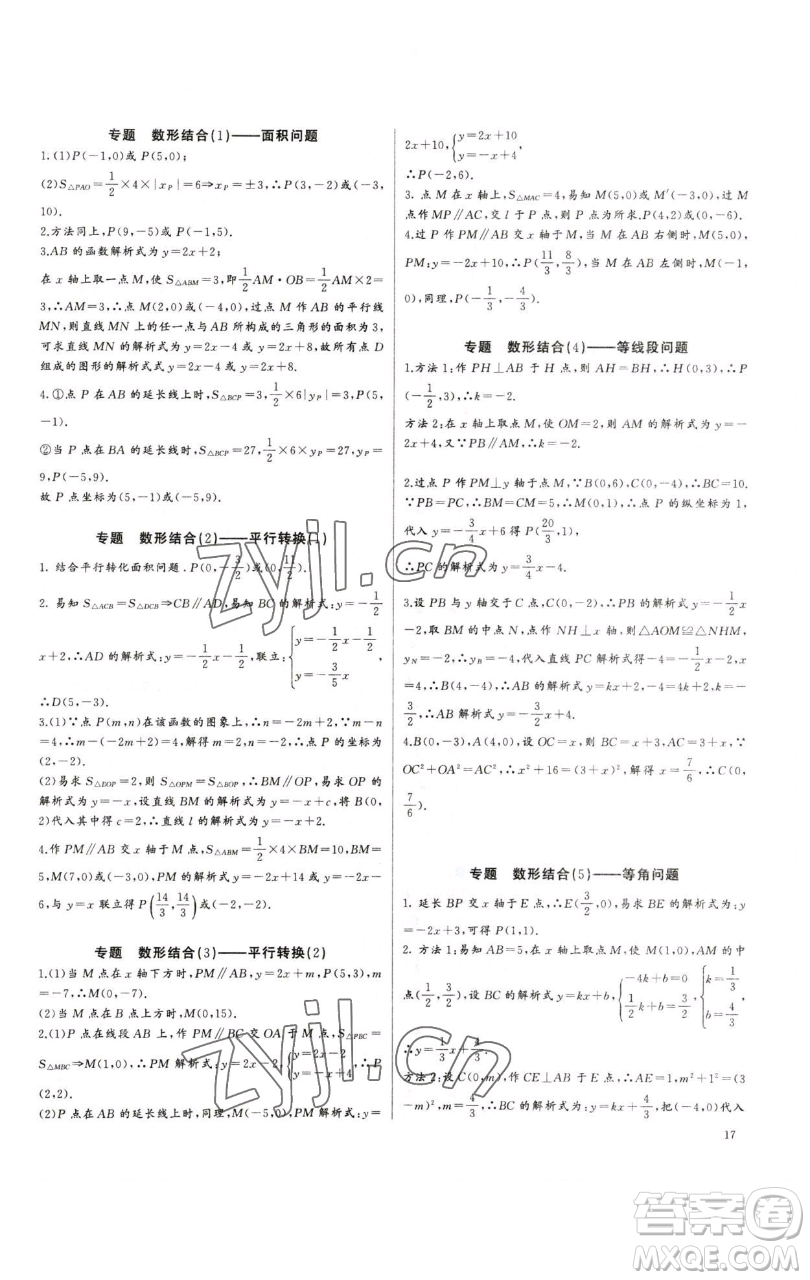 专题　数形结合(1)——面积问题
1.(1)P(－1,0)或 P(5,0);
(2)S△PAO=1/2×4×|xP|=6⇒xP=±3,∴P(3,－2)或(－3,
10).
2.方法同上,P(9,－5)或(－1,5).
3.AB 的函数解析式为 y=2x+2;
在 x 轴上取一点 M,使 S△ABM=3,即1/2AM·OB=1/2AM×2=
3,∴AM=3,∴点 M(2,0)或(－4,0),过点 M 作 AB 的平行线
MN,则直线 MN 上的任一点与 AB 所构成的三角形的面积为 3,
可求直线 MN 的解析式为 y=2x－4 或 y=2x+8,故所有点 D
组成的图形的解析式为 y=2x－4 或 y=2x+8.
4.①点 P 在 AB 的延长线上时,S△BCP=3,1/2×6|yP|=3,P(5,
－1).
②当 P 点在 BA 的延长线上时,S△BCP=27,1/2×6×yP=27,yP=
9,P(－5,9).
故 P 点坐标为(5,－1)或(－5,9).
专题　数形结合(2)——平行转换(1)
1. 结合平行转化面积问题.P(0,－3/2)或(0,11/2).
2. 易知 S△ACB=S△DCB⇒CB∥AD,易知 BC 的解析式:y=－1/2
x+2,∴AD 的解析式:y=－1/2x－1/2,联立:{y=－1/2x－1/2 y=－3/5x
∴D(5,－3).
3.(1)∵点 P(m,n)在该函数的图象上,∴n=－2m+2,∵m－n
=4,∴m－(－2m+2)=4,解得 m=2,n=－2,∴点 P 的坐标为
(2,－2).
(2)易求 S△BOP=2,则 S△OPM=S△BOP,∴BM∥OP,易求 OP 的
解析式为 y=－x,设直线 BM 的解析式为 y=－x+c,将 B(0,
2)代入其中得 c=2,∴直线 l 的解析式为 y=－x+2.
4.作 PM∥AB 交 x 轴于 M 点,S△ABM=1/2×4×BM=10,BM=
5,M(7,0)或(－3,0),∴PM 的解析式为 y=－2x+14 或 y=－2x－
6,与 y=x 联立得 P(14/3,14/3)或(－2,－2).
专题　数形结合(3)——平行转换(2)
1.(1)当 M 点在 x 轴下方时,PM∥AB,y=2x－7,P(5,3),m
=－7,∴M(0,－7).
(2)当 M 点在 B 点上方时,M(0,15).
2.(1)P 点在线段 AB 上,作 PM∥BC 交 OA 于 M 点,S△PBC=
S△MBC⇒M(1,0),∴PM 解析式:y=2x－2,{y=2x－2 y=－x+4,∴P
(2,2).
(2)P 点在 AB 的延长线上时,同理,M(－5,0),PM 解析式:y=
2x+10,{y=2x+10 y=－x+4,
∴P(－2,6).
3. 点 M 在 x 轴上,S△MAC=4,易知 M(5,0)或 M′(－3,0),过 M
点作 MP∥AC,交 l 于 P 点,则 P 点为所求,P(4,2)或(0,－6).
4.过 P 作 PM∥AB 交 x 轴于 M,当 M 在 AB 右侧时,M(5,0),
PM:y=－2x+10,∴P(11/3,8/3);当 M 在 AB 左侧时,M(－1,
0),同理,P(－1/3,－4/3).
专题　数形结合(4)——等线段问题
1.方法 1:作 PH⊥AB 于 H 点,则 AH=BH,∴H(0,3),∴P
(－1/2,3),∴k=－2.
方法 2:在 x 轴上取点 M,使 OM=2,则 AM 的解析式为 y=－
2x+4,又∵PB∥AM,∴k=－2.
2.过点 P 作 PM⊥y 轴于点 M,∵B(0,6),C(0,－4),∴BC=10.
∵PB=PC,∴BM=CM=5,∴M(0,1),∴点 P 的纵坐标为 1,
代入 y=－3/4x+6 得 P(20/3,1),
∴PC 的解析式为 y=3/4x－4.
3.设 PB 与 y 轴交于 C 点,易求点 A(－4,0),M(0,－2),y=－1/2x
－2,取 BM 的中点 N,作 NH⊥x 轴,则△AOM≌△NHM,∴
yN=－2,∴yB=－4,代入直线 PC 解析式得－4=－1/2x－2,x=
4,∴B(4,－4),代入 y=kx－4k+2,∴－4=4k－4k+2,∴k=－
3/2,∴直线解析式为 y=－3/2x+4.
4.B(0,－3),A(4,0),设 OC=x,则 BC=AC=x+3,∵
OC²+OA²=AC²,∴x²+16=(x+3)²,解得 x=7/6,∴C(0,
7/6).
专题　数形结合(5)——等角问题
1. 延长 BP 交 x 轴于 E 点,∴E(3/2,0),易求 BE 的解析式为 y=
－2x+3,∴P(1,1).
2. 方法 1:易知 AB=5,在 x 轴正半轴上取点 M(1,0),则 AM 的中
点(1/2,3/2),设 BC 的解析式为 y=kx+b,{－4k+b=0 1/2k+b=3/2,{k=1/3 b=4/3,
∴y=1/3x+4/3.
方法 2:设 C(0,m),作 CE⊥AB 于 E 点,∴AE=1,m²+1²=(3
－m)²,m=4/3,∴BC 的解析式为:y=kx+4/3,把(－4,0)代入
17
zyjl.cn
zyjl.cn
答案圈
MXQE.COM